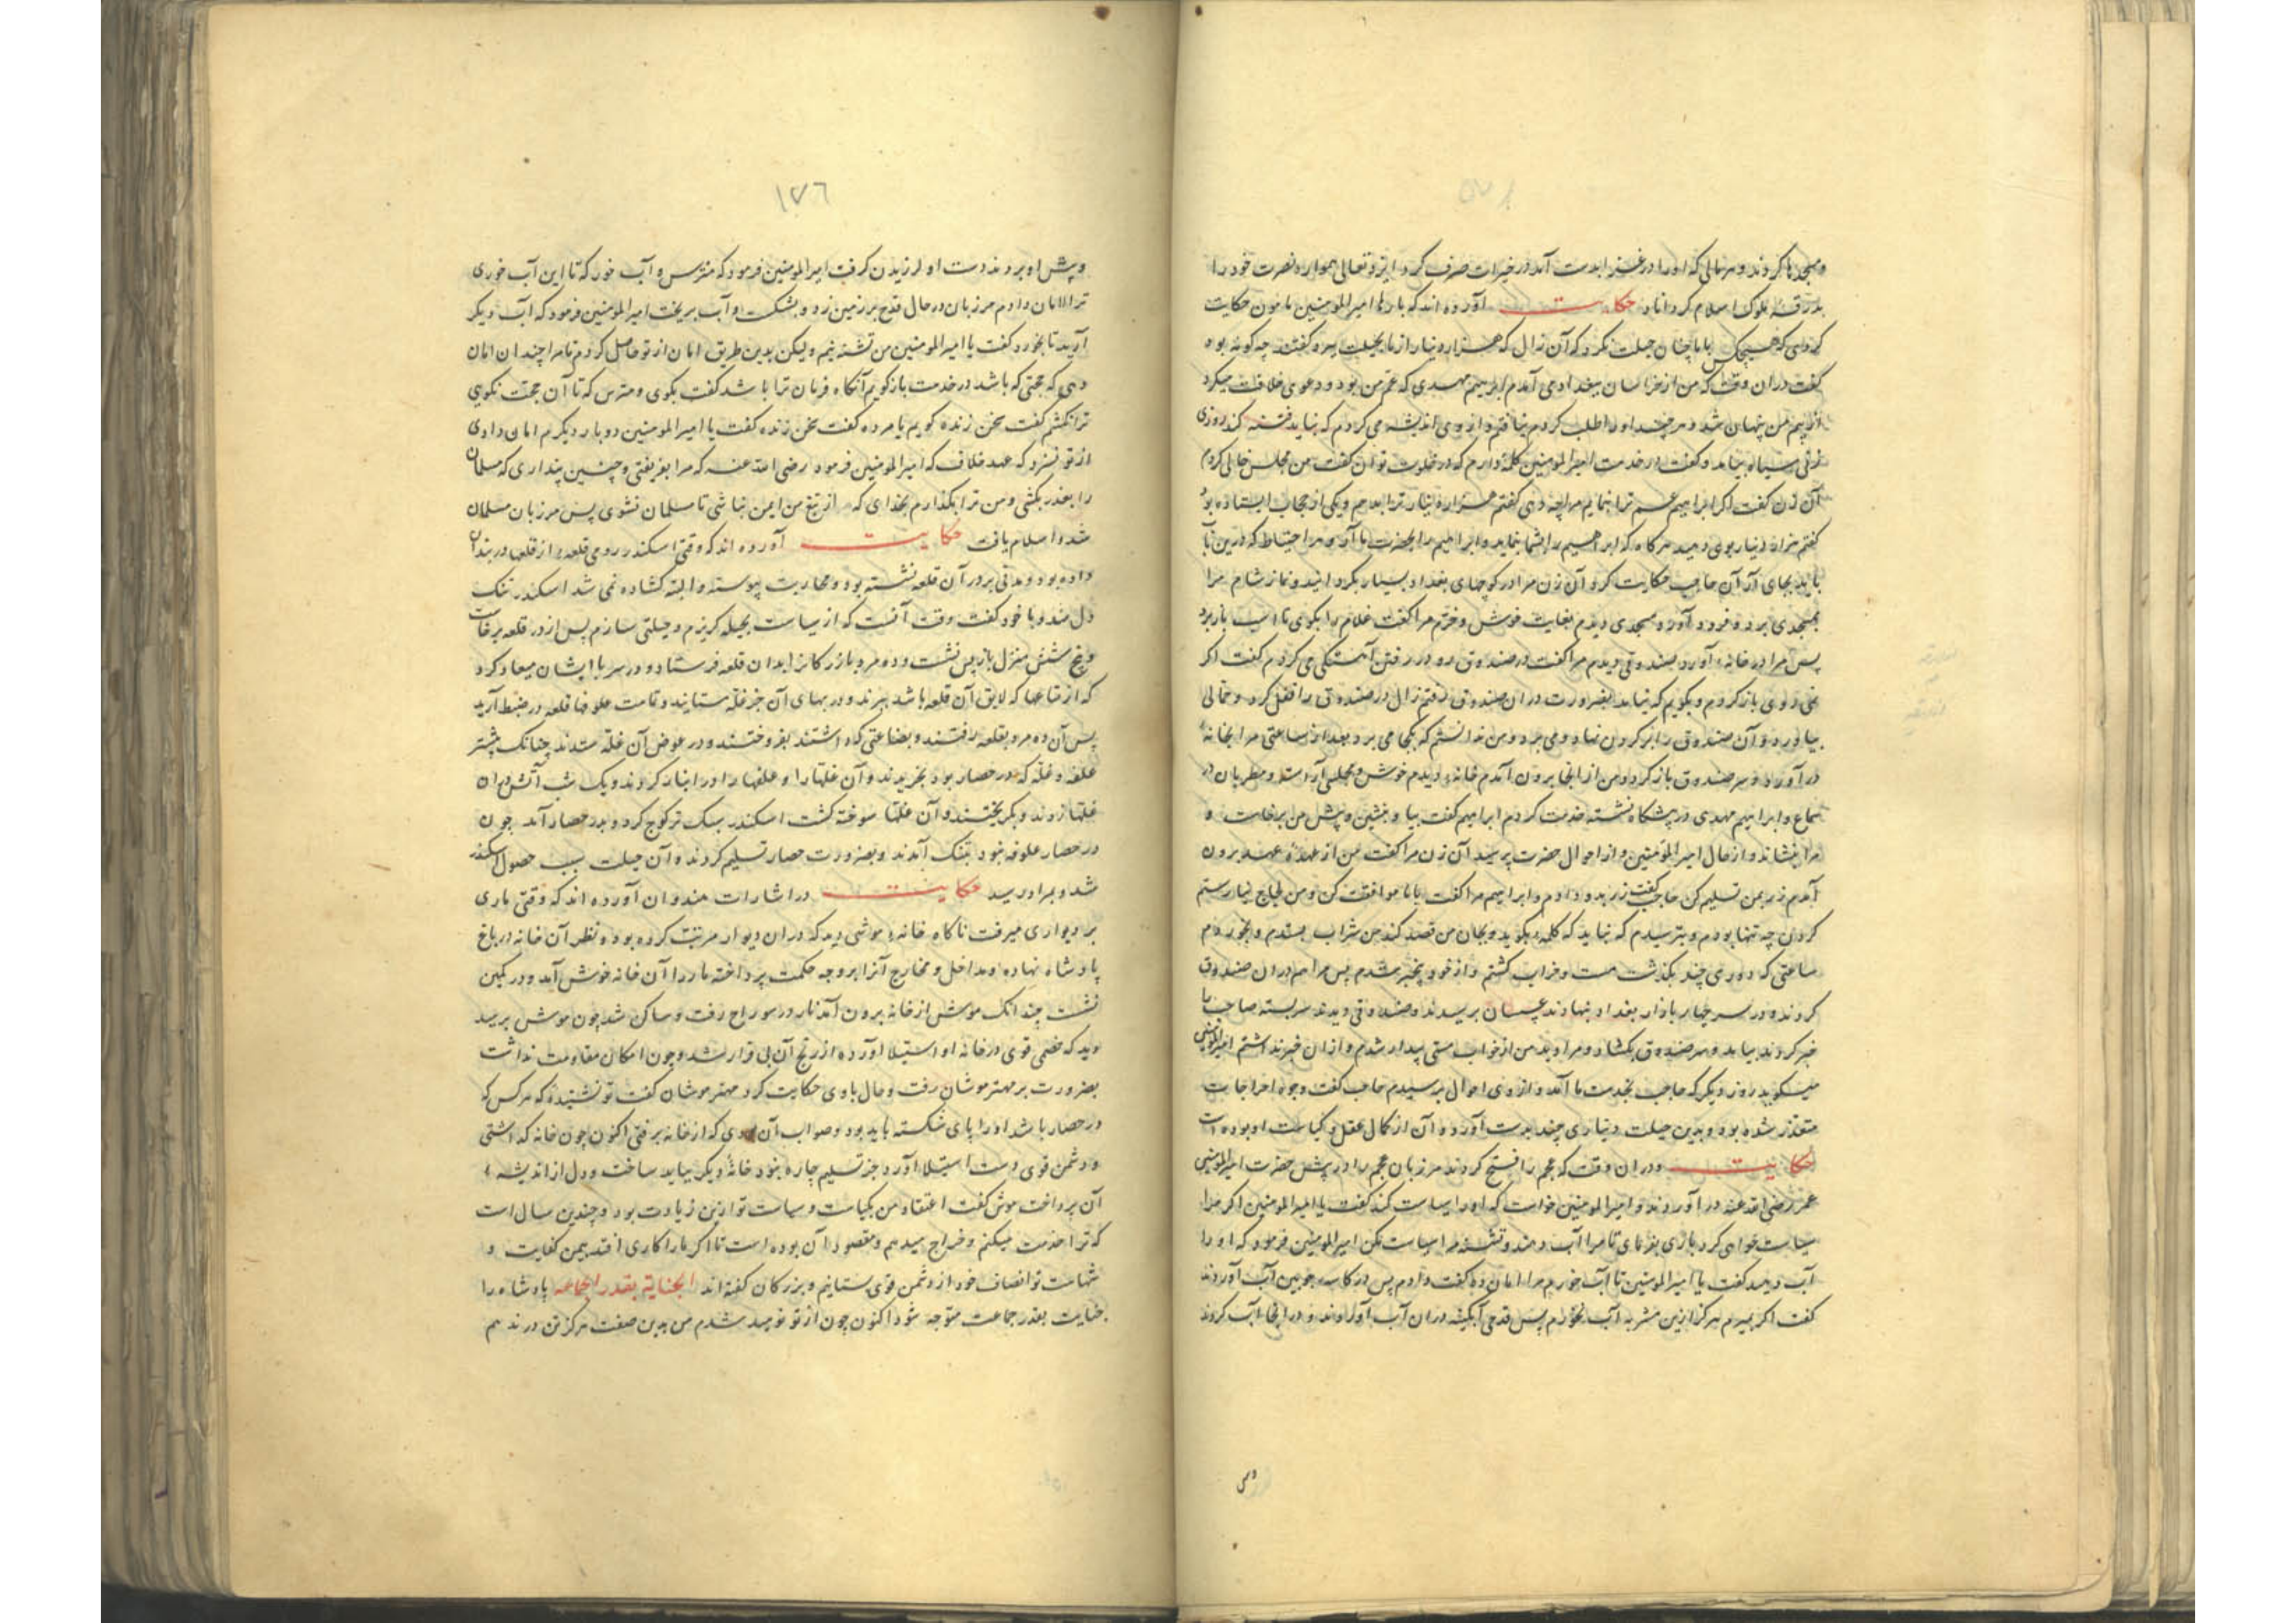 و مسجدها کردند و هر مالی که او را در غزو بدست آمد در خیرات صرف کرد ایزد تعالی همواره نصرت خود را
بدرقهٔ ملوک اسلام کرداناد حکایت آورده اند که بارها امیرالمومنین مامون حکایت
کردی که هیچکس با ما چنان حیلت نکرد که آن زال که هزار دینار از ما بحیلت ببرد گفتند چه کونه بود
گفت دران وقت که من از خراسان ببغداد می آمدم ابرهیم مهدی که عم من بود و دعوی خلافت میکرد
از بیم من پنهان شد و هر چند او را طلب کردم نیافتم و از وی اندیشه می کردم که نباید فتنه کند روزی
زنی سیاه بیامد و گفت در خدمت امیرالمومنین کلمهٔ دارم که در خلوت توان گفت من مجلس خالی کردم
آن زن گفت اکر ابراهیم عم ترا بنمایم مرا چه دهی گفتم هزار دینار ترا بدهم و یکی از حجاب ایستاده بود
گفتم هزار دینار بوی دهید هرکاه که ابراهیم را بشما نماید و ابراهیم را بحضرت ما آرد و هر احتیاط که درین باب
باید بجای آر آن حاجب حکایت کرد آن زن مرا در کوچهای بغداد بسیار بکردانید و نماز شام مرا
بمسجدی برد و فرود آورد مسجدی دیدم بغایت خوش و خرم مرا گفت غلام را بکوی تا اسب باز برد
پس مرا در خانهٔ آورد صندوقی دیدم مرا گفت در صندوق رو در رفتن آهستگی می کردم گفت اکر
نمی روی باز کردم و بکویم که نیامد بضرورت در آن صندوق رفتم زال در صندوق را قفل کرد و حمالی
بیاورد و آن صندوق را بر کردن نهاد و می برد و من ندانستم که بکجا می برد بعد از ساعتی مرا بخانهٔ
در آورد و سر صندوق باز کرد و من از انجا برون آمدم خانهٔ دیدم خوش و مجلس آراسته و مطربان در
سماع و ابراهیم مهدی در پیشکاه نشسته خدمت کردم ابراهیم گفت بیا و بنشین و پیش من برخاست و
مرا بنشاند و از حال امیرالمومنین و از احوال حضرت پرسید آن زن مرا گفت من از عهدهٔ عهد برون
آمدم زر بمن تسلیم کن حاجب گفت زر بدو دادم و ابراهیم مرا گفت با ما موافقت کن و من لجاج نیارستم
کردن چه تنها بودم و بترسیدم که نباید که کلمهٔ بکوید و بجان من قصد کند من شراب بستدم و بخوردم
ساعتی که دوری چند بکذشت مست و خراب کشتم و از خود بیخبر شدم پس مرا هم دران صندوق
کردند و در سر چهار بازار بغداد بنهادند عسسان برسیدند و صندوقی دیدند سر بسته صاحب را
خبر کردند بیامد و سر صندوق بکشاد و مرا دید من از خواب مستی بیدار شدم و ازان خبر نداشتم امیرالمومنین
میکوید روز دیکر که حاجب بخدمت ما آمد و از وی احوال پرسیدم حاجب گفت وجوه اخراجات
متعذر شده بود و بدین حیلت دیناری چند بدست آورده آن از کمال عقل و کیاست او بوده است
حکایت و دران وقت که عجم را فتح کردند مرزبان عجم را در پیش حضرت امیرالمومنین
عمر رضی الله عنه در آوردند و امیرالمومنین خواست که او را سیاست کند گفت یا امیرالمومنین اکر مرا
سیاست خواهی کرد باری بفرمای تا مرا آب دهند و تشنه مرا سیاست مکن امیرالمومنین فرمود که او را
آب دهید گفت یا امیرالمومنین تا آب خورم مرا امان ده گفت دادم پس در کاسهٔ چوبین آب آوردند
گفت اکر بمیرم هرکز ازین مشربه آب نخورم پس قدحی آبکینه دران آب آوردند و در انجا آب کردند
وپیش
١٧٦
و پیش او بردند دست او لرزیدن کرفت امیرالمومنین فرمود که مترس و آب خور که تا این آب خوری
ترا امان دادم مرزبان در حال قدح بر زمین زد و بشکست و آب بریخت امیرالمومنین فرمود که آب دیکر
آرید تا بخورد گفت یا امیرالمومنین من تشنه نیم ولیکن بدین طریق امان از تو حاصل کردم تا مرا چندان امان
دهی که حجتی که باشد در خدمت بازکویم آنکاه فرمان ترا باشد گفت بکوی و مترس که تا آن حجت نکویی
ترا نکشم گفت سخن زنده کویم یا مرده گفت سخن زنده گفت یا امیرالمومنین دو بار دیکرم امان دادی
از تو نسزد که عهد خلاف کنی امیرالمومنین فرمود رضی الله عنه که مرا بفریفتی و چنین پنداری که مسلمان
را بغدر بکشی و من ترا بکذارم بخدای که از تیغ من ایمن نباشی تا مسلمان نشوی پس مرزبان مسلمان
شد و اسلام یافت حکایت آورده اند که وقتی اسکندر رومی قلعهٔ از قلعها در بندان
داده بود و مدتی بر در آن قلعه نشسته بود و محاربت پیوسته و البته کشاده نمی شد اسکندر تنک
دل شد و با خود گفت وقت آنست که از سیاست بحیله کریزم و حیلتی سازم پس از در قلعه برخاست
و پنج شش منزل باز پس نشست و ده مرد بازرکانرا بدان قلعه فرستاد و در سر با ایشان میعاد کرد
که از متاعها که لایق آن قلعه باشد ببرند و در بهای آن جز غله نستانند و تمامت علوفهٔ قلعه در ضبط آرید
پس آن ده مرد بقلعه رفتند و بضاعتی که داشتند بفروختند و در عوض آن غله ستدند چنانک بیشتر
علفه و غله که در حصار بود بخریدند و آن غلتها را و علفها را در انبار کردند و یک شب آتش دران
غلتها زدند و بکریختند و آن غلتها سوخته کشت اسکندر سبک تر کوچ کرد و بدر حصار آمد چون
در حصار علوفه نبود بتنک آمدند و بضرورت حصار تسلیم کردند و آن حیلت سبب حصول اسکندر
شد و بمراد رسید حکایت در اشارات هندوان آورده اند که وقتی ماری
بر دیواری میرفت ناکاه خانهٔ موشی دید که دران دیوار مرتب کرده بود و نظر آن خانه در باغ
پادشاه نهاده و مداخل و مخارج آنرا بر وجه حکمت پرداخته مار را آن خانه خوش آمد و در کمین
نشست چندانک موش از خانه برون آمد مار در سوراخ رفت و ساکن شد چون موش برسید
دید که خصمی قوی در خانهٔ او استیلا آورده از رنج آن بی قرار شد و چون امکان مقاومت نداشت
بضرورت بر مهتر موشان رفت و حال با وی حکایت کرد مهتر موشان گفت تو نشنیدهٔ که هرکس که
در حصار باشد او را پای شکسته باید بود و صواب آن بودی که از خانه نرفتی اکنون چون خانه کذاشتی
و دشمن قوی دست استیلا آورد جز تسلیم چاره نبود خانهٔ دیکر بباید ساخت و دل از اندیشهٔ
آن پرداخت موش گفت اعتقاد من بکیاست و سیاست تو ازین زیادت بود و چندین سال است
که ترا خدمت میکنم و خراج میدهم و مقصود آن بوده است تا اکر ما را کاری افتد بیمن کفایت و
شهامت تو انصاف خود از دشمن قوی بستانیم و بزرکان گفته اند الجنایة بقدر الجماعه پادشاه را
جنایت بقدر جماعت متوجه شود اکنون چون از تو نومید شدم من بدین صفت هرکز تن در ندهم